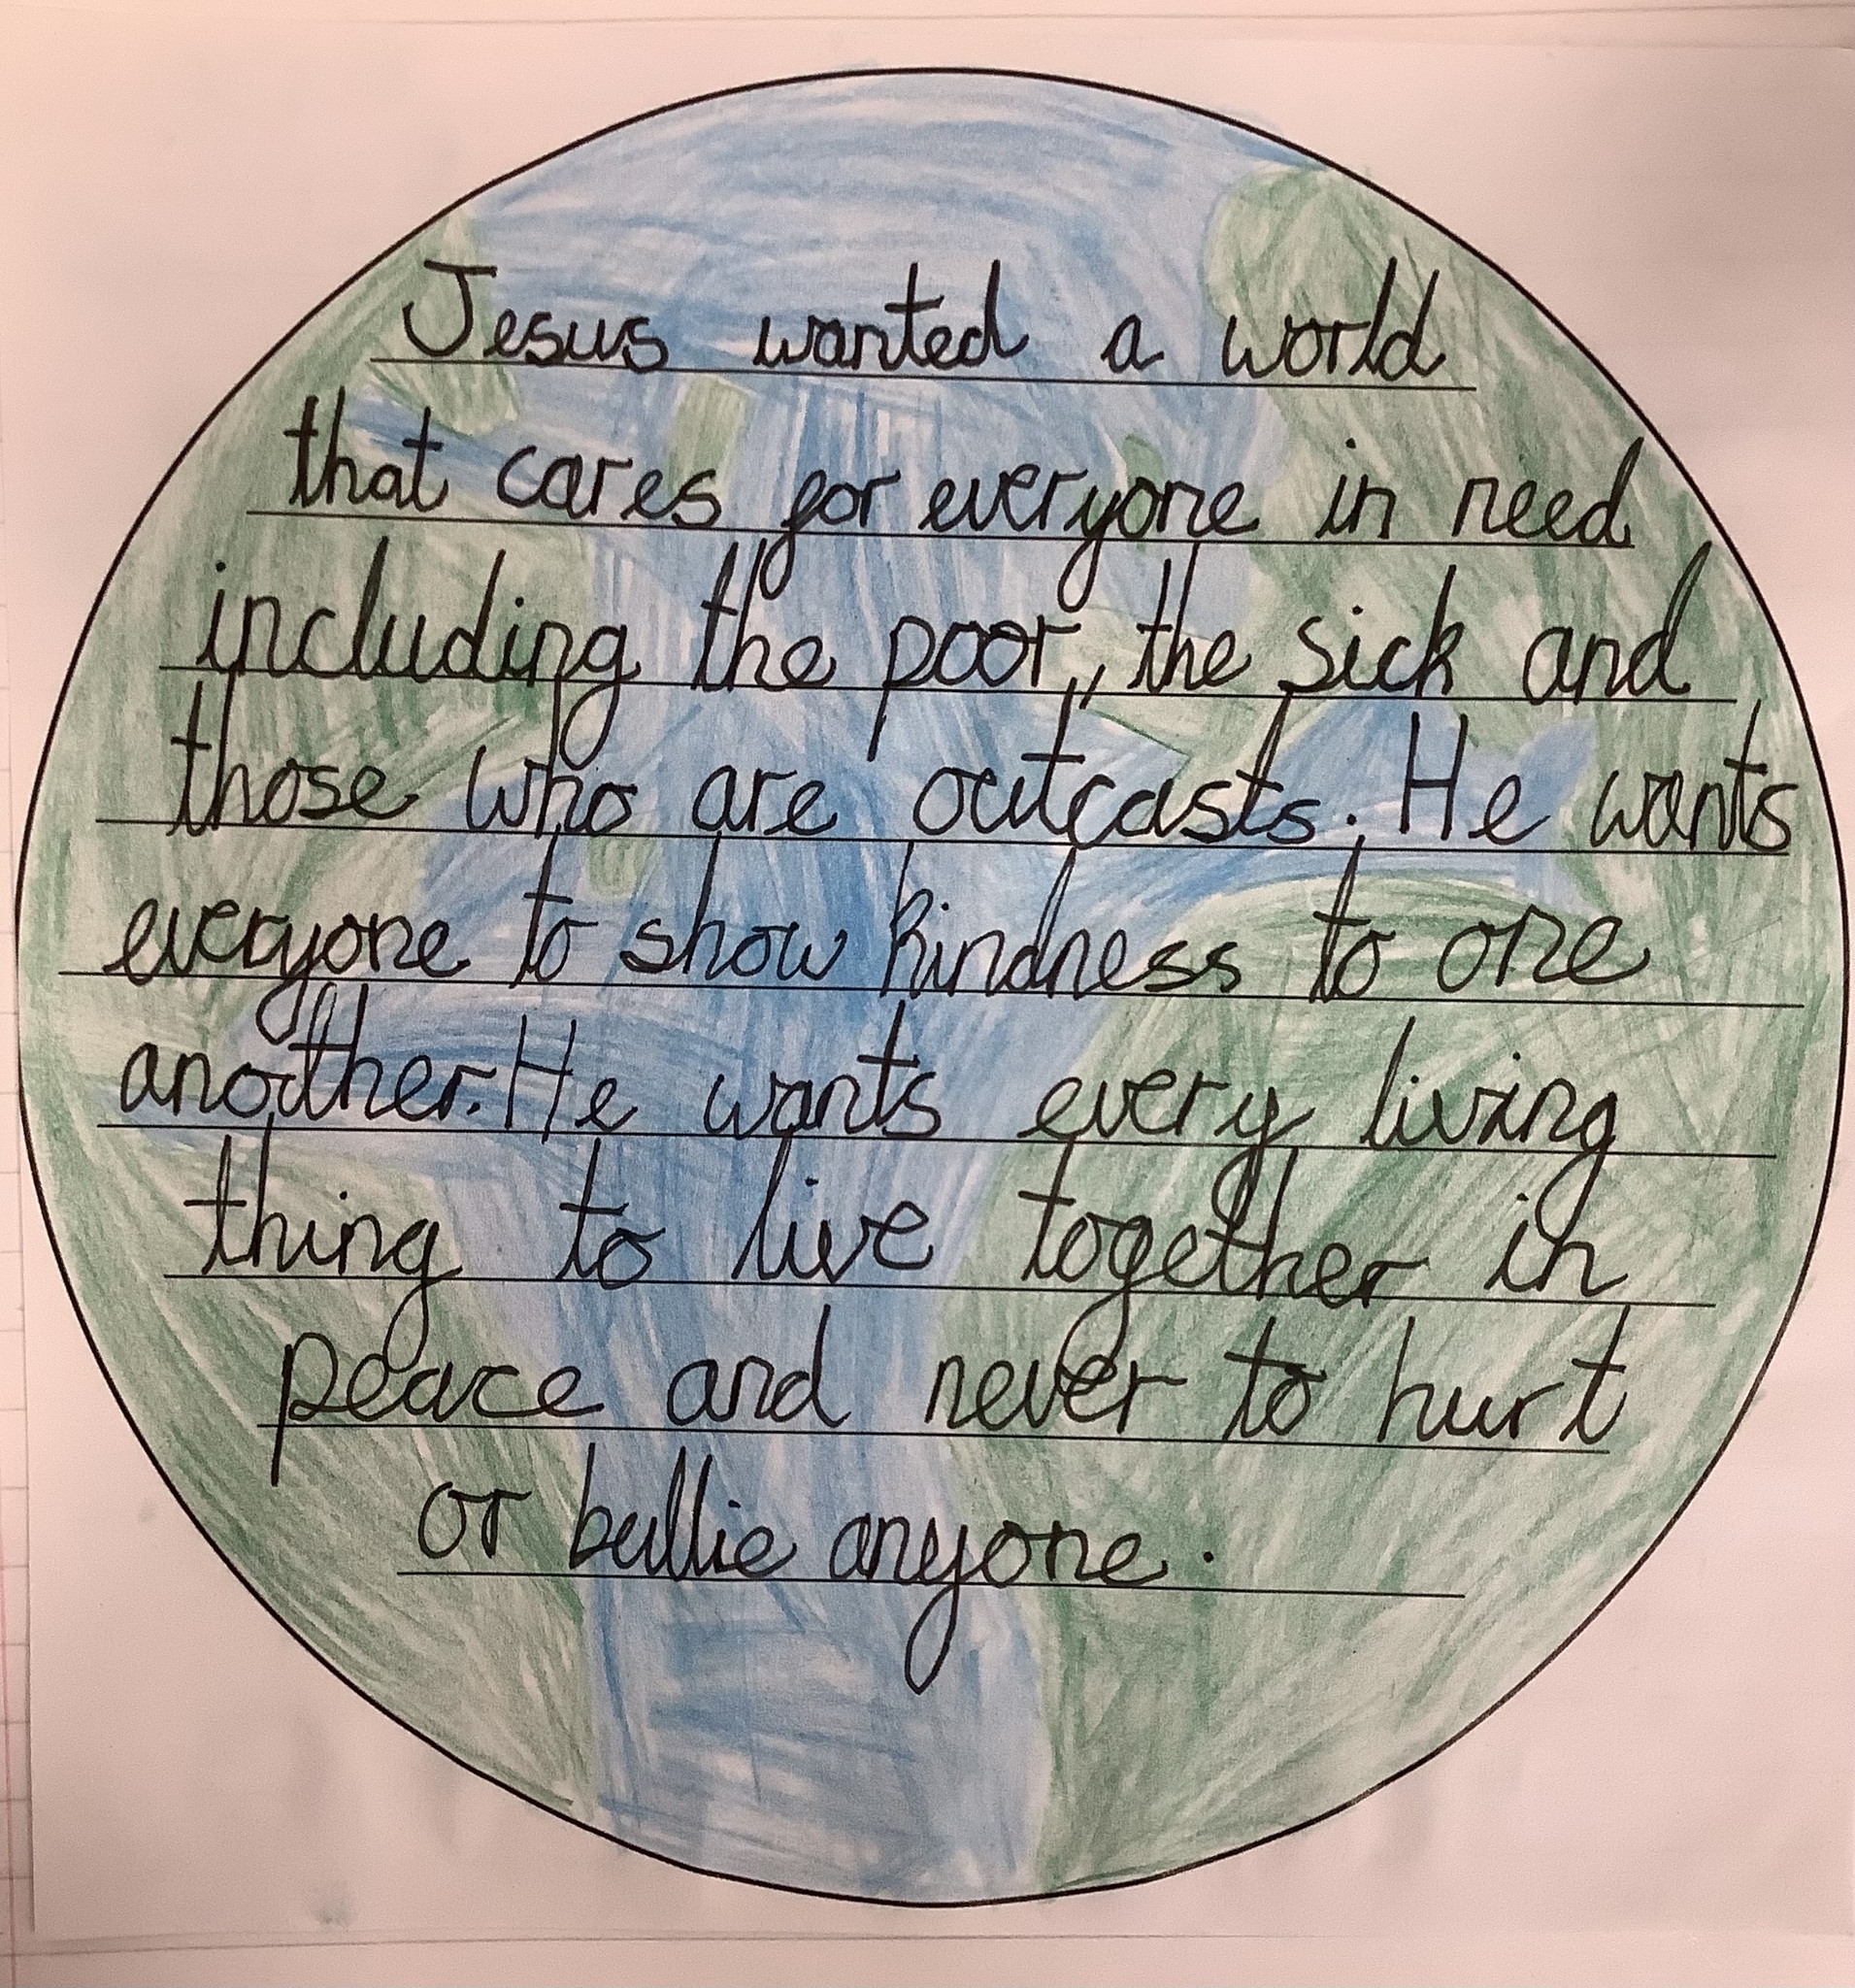 Jesus wanted a world
that cares for everyone in need
including the poor, the sick and
those who are outcasts. He wants
everyone to show kindness to one
another. He wants every living
thing to live together in
peace and never to hurt
or bullie anyone.